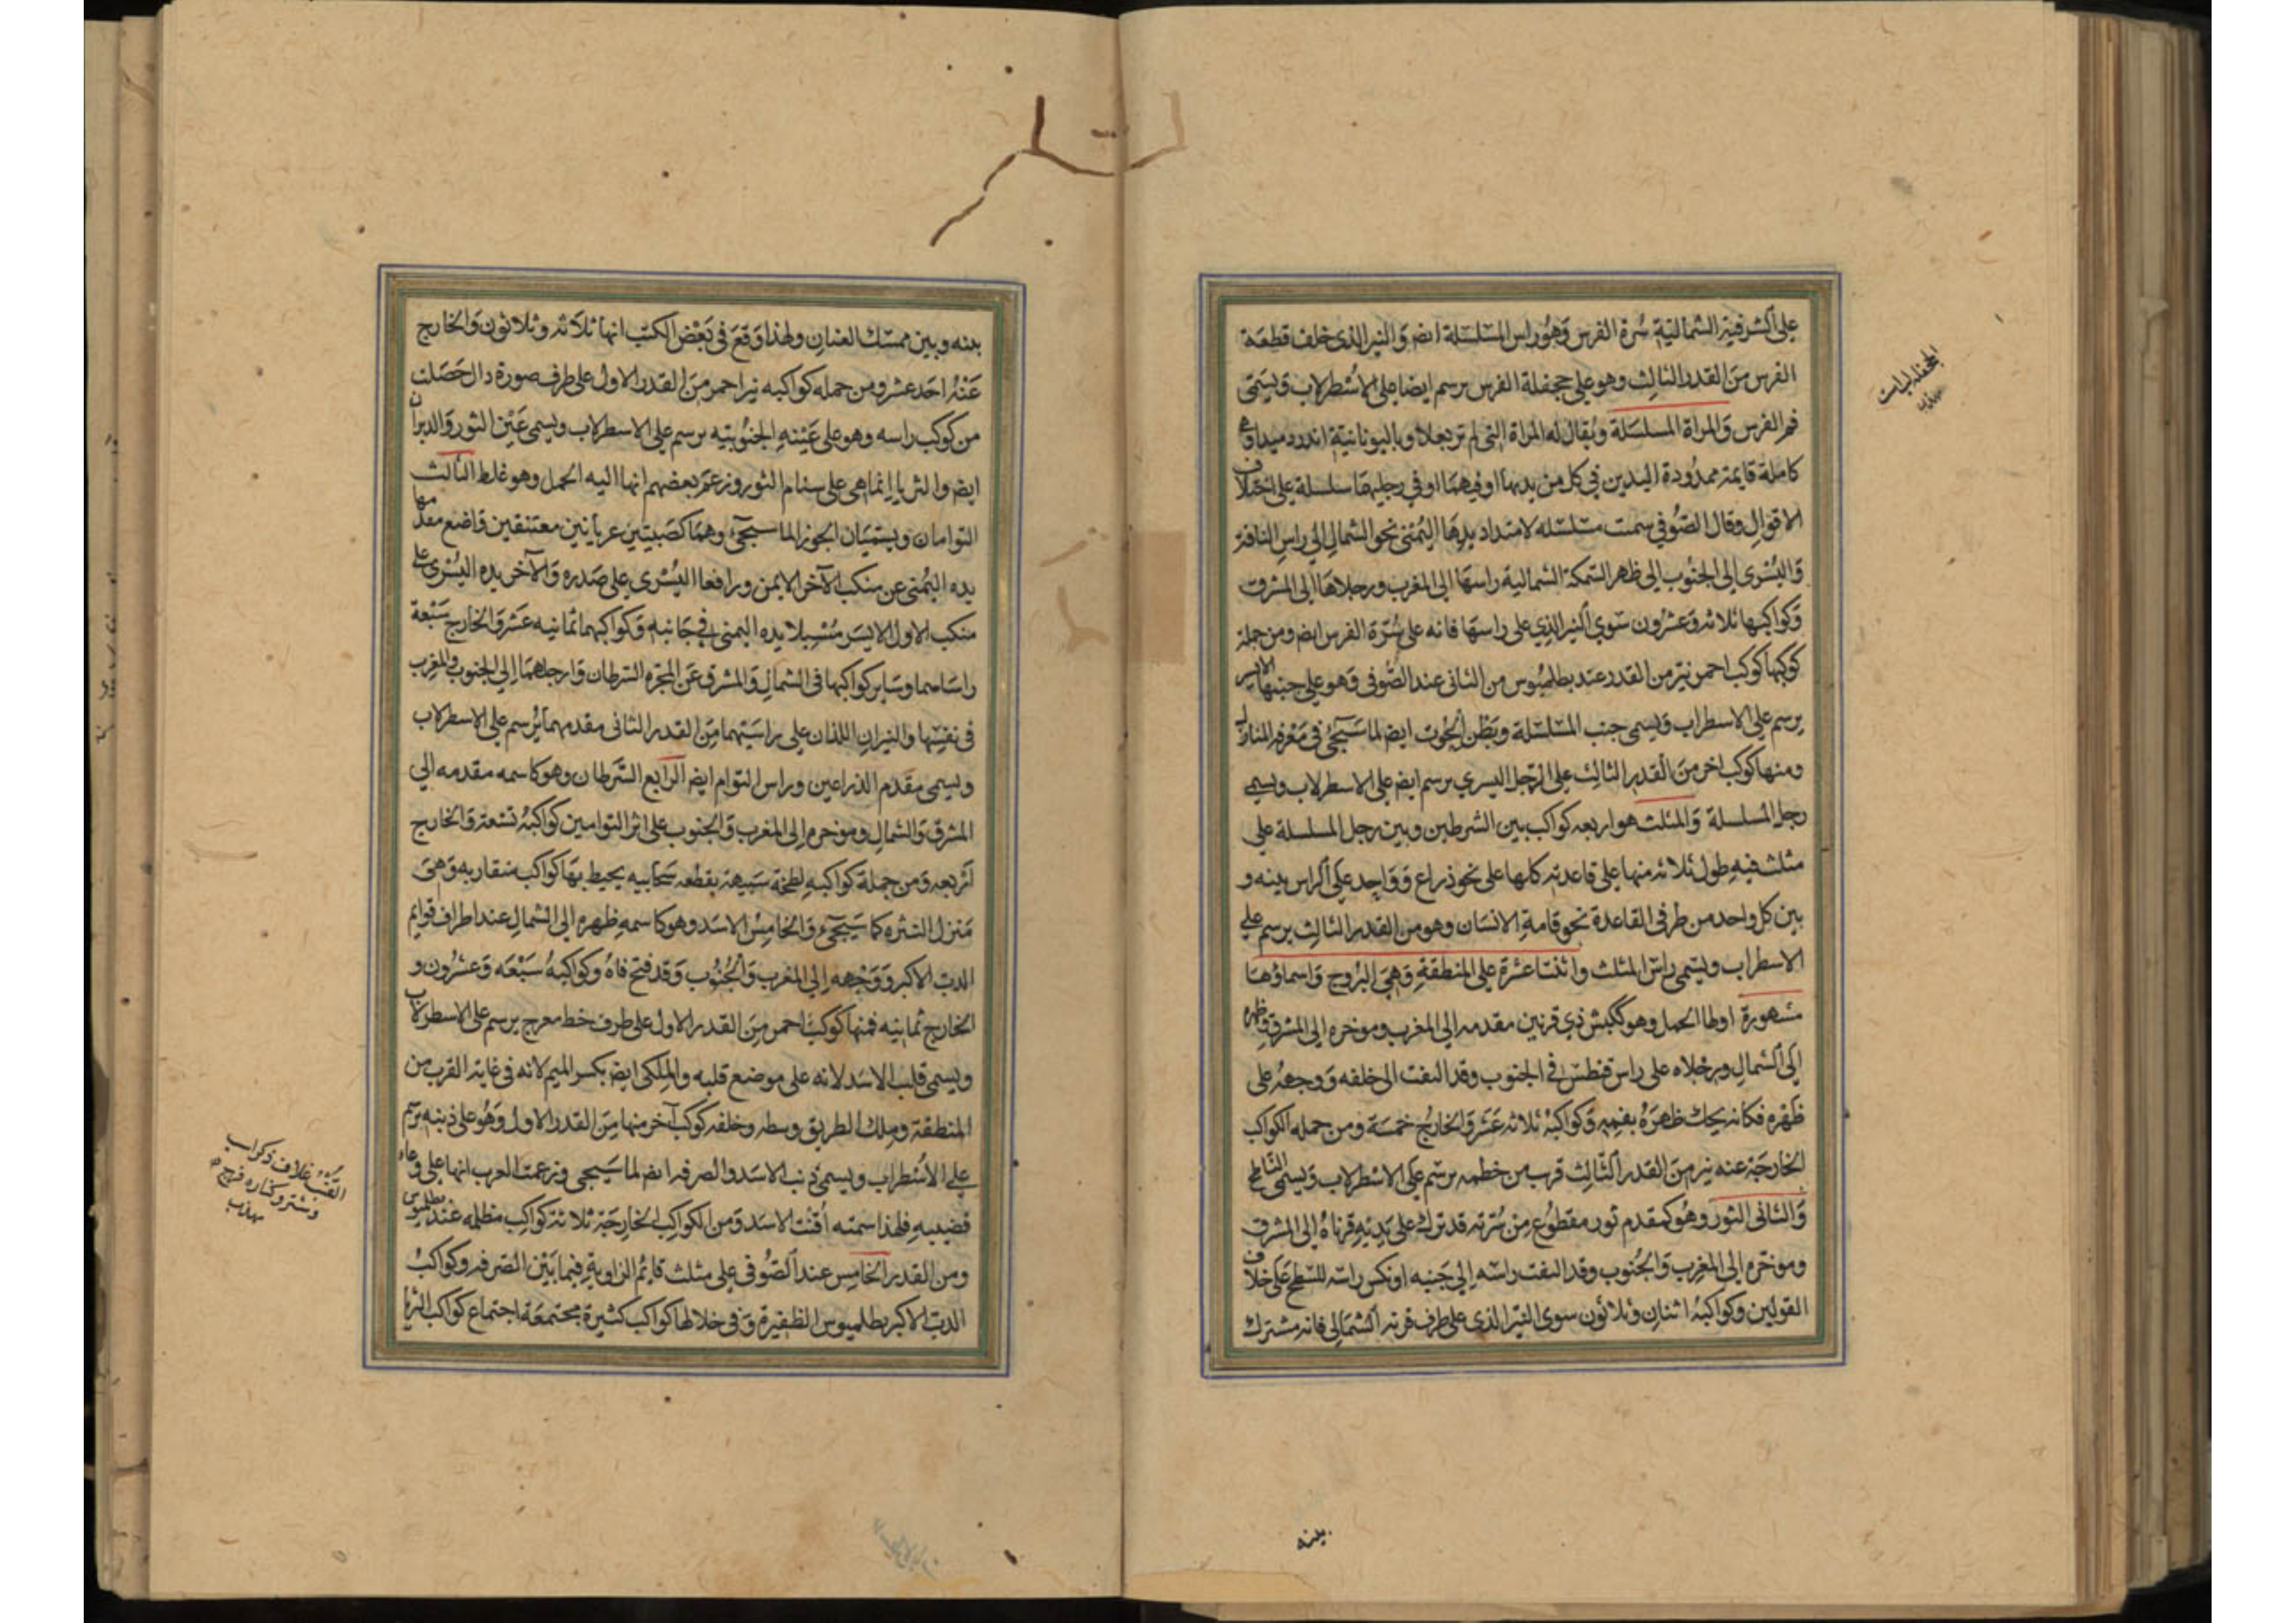 على كتفه الشمالية سُرة الفرس وَهُو راس المسلسلة ايضا وَالنير الذى خلف قطعة
الفرس مِنَ القدر الثالث وهو على جحفلة الفرس يرسم ايضا على الاسْطرلاب وَيسمّى
فم الفرس وَالمراة المسلسَلة وَيُقال له المراة التى لم تر بعلا وباليونانية اندروميدا وهى
كاملة قايمة ممدُودة اليدين فى كل من يديها او فيهما او فى رجليها سلسلة على اختلاف
الاقوال وقال الصُّوفى سميت مسلسله لامتداد يدها اليُمنى نحو الشمال الى راس الناقة
وَاليُسْرى الى الجنُوب الى ظهر السّمكة الشمالية راسها الى المغرب ورجلاها الى المشرق
وَكواكبها ثلاثة وَعشرُون سَوى النير الذى على راسها فانه على سُرّة الفرس ايضا ومن جملة
كوكبها كوكب احمر نيّر من القدر عند بطلميُوس من الثانى عند الصُّوفى وَهو على جنبها الايسر
يرسم على الاسطراب وَيسمى جنب المسَلسَلة وبَطْن الحُوت ايضا لما سَيجئُ فى مَعْرفه المنازل
ومنها كوكب اخر مِنَ القدر الثالث على الرّجل اليسرى يرسم ايضا على الاسطرلاب ويسمى
رجل المسلسلة وَالمثلث هو اربعه كواكب بين الشرطين وبين رجل المسلسلة على
مثلث فيهِ طول ثلاثة منها على قاعدته كلها على نحو ذراع وَوَاحِد على الراس بينه و
بين كل واحد من طرفى القاعدة نحو قامة الانسَان وهو من القدر الثالث يرسم على
الاسطراب ويسَمى راسَ المثلث واثنتا عشرة على المنطقةِ وَهِىَ البرُوج وَاسماؤها
مشهورة اولها الحمل وهو ككبش ذى قرنين مقدمه الى المغرب وموخره الى المشرق وَظهره
اِلى الشمالِ ورجْلاه على راس قنطس فى الجنوب وقد التفت الى خلفه وَوجههُ على
ظَهْره فكانه يحك ظهرَهُ بفمِهِ وَكواكبهُ ثلاثة عَشَر وَالخارجُ خمسَة ومن جمله الكواكب
الخارجَة عنه نير مِنَ القدر الثالث قرب من خطمه يرسَم على الاسْطرلاب وَيسمى الناطح
وَالثانى الثور وهُو كمقدم ثور مقطوُع مِن سُرّته قد برك على يديهِ قرناهُ الى المشرق
وموخّره الى المغرِب وَالجُنوب وقد التفت راسَه الى جَنبه او نكس راسَه للنَطح عَلى خلاف
القولين وكواكبهُ اثنان وثلاثُون سوى النيّر الذى على طرف قرنه الشمالى فانه مشترك
الجحفلة
بينه
بينه وبين ممسك العنان ولهذا وَقعَ فى بَعْض الكتب انها ثلاثة وثلاثون وَالخارج
عَنْهُ احَد عشر ومن جمله كواكبه نير احمر مِنَ القدر الاول على طرف صورة دال حَصَلت
من كوكب راسه وهو على عَيْنهِ الجنُوبيه يرسم على الاسطرلاب ويسمى عَيْن الثور وَالدبران
ايضا والثريا انما هى على سنام الثور وزعم بعضهم انها اليه الحمل وهو غلط الثالث
التوامان ويسميَان الجوزا لما سيجئ وهما كصَبيّين عريانين معتنقين وَاضع مقدمهما
يده اليُمنى عن منكب الآخر الايمن ورافعا اليُسْرى على صَدره وَالآخر يده اليُسْرى على
منكب الاول الايسَر مُسْبلا يده اليمنى فى جَانبهِ وَكواكبهما ثمانيه عَشر وَالخارج سَبْعة
راسَاهما وسَاير كواكبها فى الشمالِ وَالمشرق عَن المجره السّرطان وَارجلهمَا الى الجنوب والمغرب
فى نفسِها والنيران اللذان على راسَيْهما مِنَ القدر الثانى مقدمهما يُرسم على الاسطرلاب
ويسمى مقدم الذراعين وراس التوام ايضا الرابع السَّرطان وهو كاسمه مقدمه الى
المشرق وَالشمالِ وموخره الى المغرب وَالجنوب على اثر التوامين كواكبُهُ تسْعة وَالخارج
اَرْبعه وَمن جملة كواكبهِ لطخة شبيهة بقطعه سَحَابيه يحيط بهَا كواكب متقاربه وَهىَ
مَنزل النثره كما سَيَجئ وَالخامِسُ الاسَد وهو كاسمهِ ظهره الى الشمالِ عند اطراف قوايم
الدبّ الاكبر وَوَجْهه الى المغرب وَالجُنُوب وَقد فتح فاهُ وكواكبهُ سَبْعَة وَعشرُون و
الخارج ثمانيه فمنها كوكبٌ احمر مِنَ القدر الاول على طرف خط معرج يرسم على الاسطرلاب
ويسمى قلب الاسَد لانه على موضع قلبه والمِلكى ايضا بكسر الميم لانه فى غاية القرب من
المنطقة وملك الطريق وسطه وخلفه كوكب آخر منها مِنَ القدر الاول وَهُو على ذنبه يرسَم
على الاُسْطراب ويسمى ذنب الاسَد والصرفه ايضا لما سَيجى وزعمت العرب انها على وعاء
قضيبهِ فلهذا سمته قُنب الاسَد وَمن الكواكبِ الخارجَة ثلاثة كواكب مظلمه عند بطلميوس
ومن القدر الخامِس عند الصُّوفى على مثلث قائم الزاويةِ فِيما بَيْن الصرفه وكواكبُ
الدبّ الاكبر بطلميوس الظفيرة وَفى خلالها كواكب كثيرة مجتمعَة اجتماع كواكب الثريا
القُنْبُ غلاف ذكر اسب
وشتر وكناره فرج
مهذب